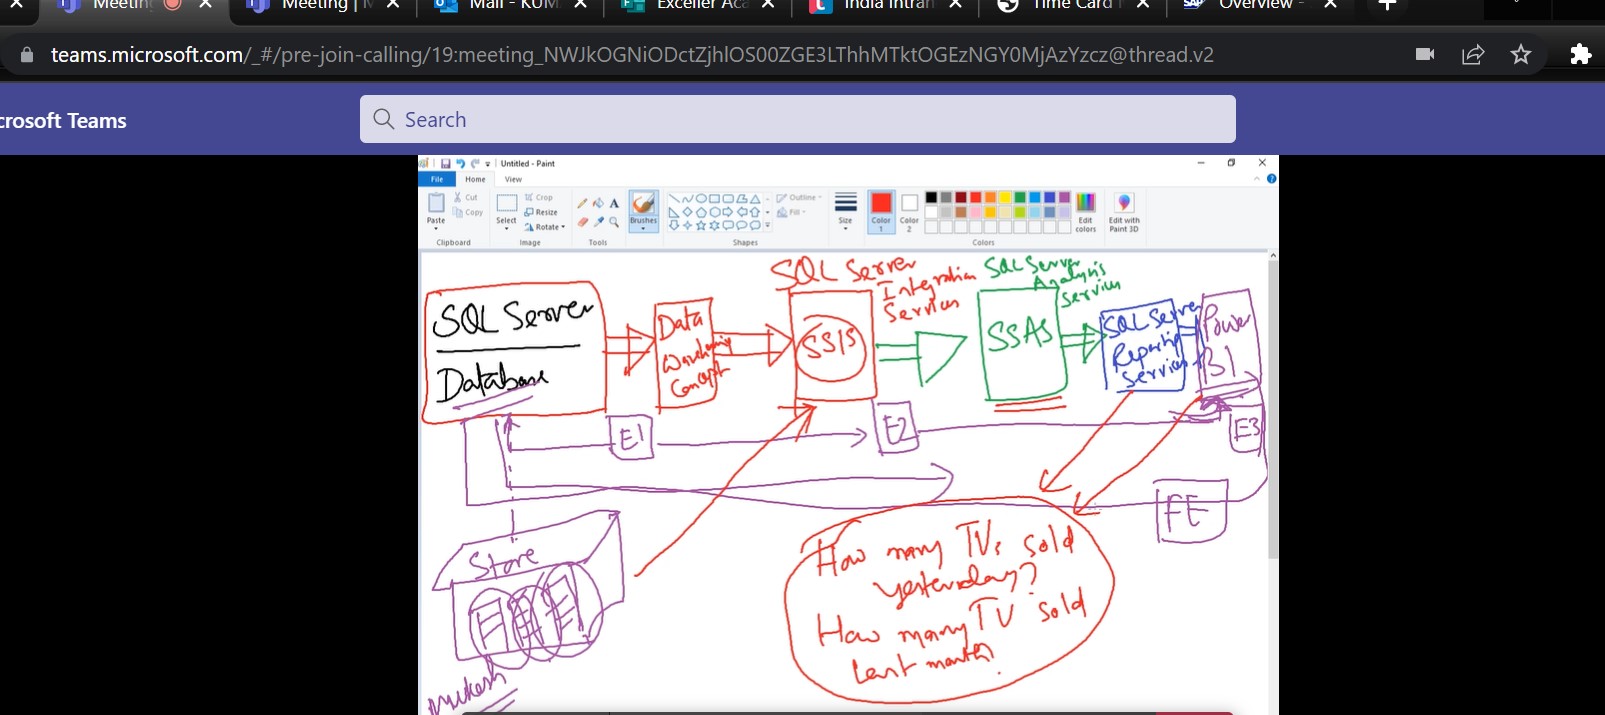 Meetin
Meeting | M
Mail - KUM
Exceller Aca
India Intran
Time Card
SAP
Overview -
teams.microsoft.com/_#/pre-join-calling/19:meeting_NWJkOGNiODctZjhlOS00ZGE3LThhMTktOGEzNGY0MjAzYzcz@thread.v2
crosoft Teams
Search
Untitled - Paint
File
Home
View
Paste
Cut
Copy
Clipboard
Select
Crop
Resize
Rotate
Image
Tools
Brushes
Shapes
Outline
Fill
Size
Color 1
Color 2
Colors
Edit colors
Edit with Paint 3D
SQL Server
Database
Data
Warehousing
Concept
SQL Server
Integration
Services
SSIS
SQL Server
Analysis
Services
SSAS
SQL Server
Reporting
Services
Power
BI
E1
E2
E3
FE
Store
Mukesh
How many TVs sold
yesterday?
How many TV sold
last month